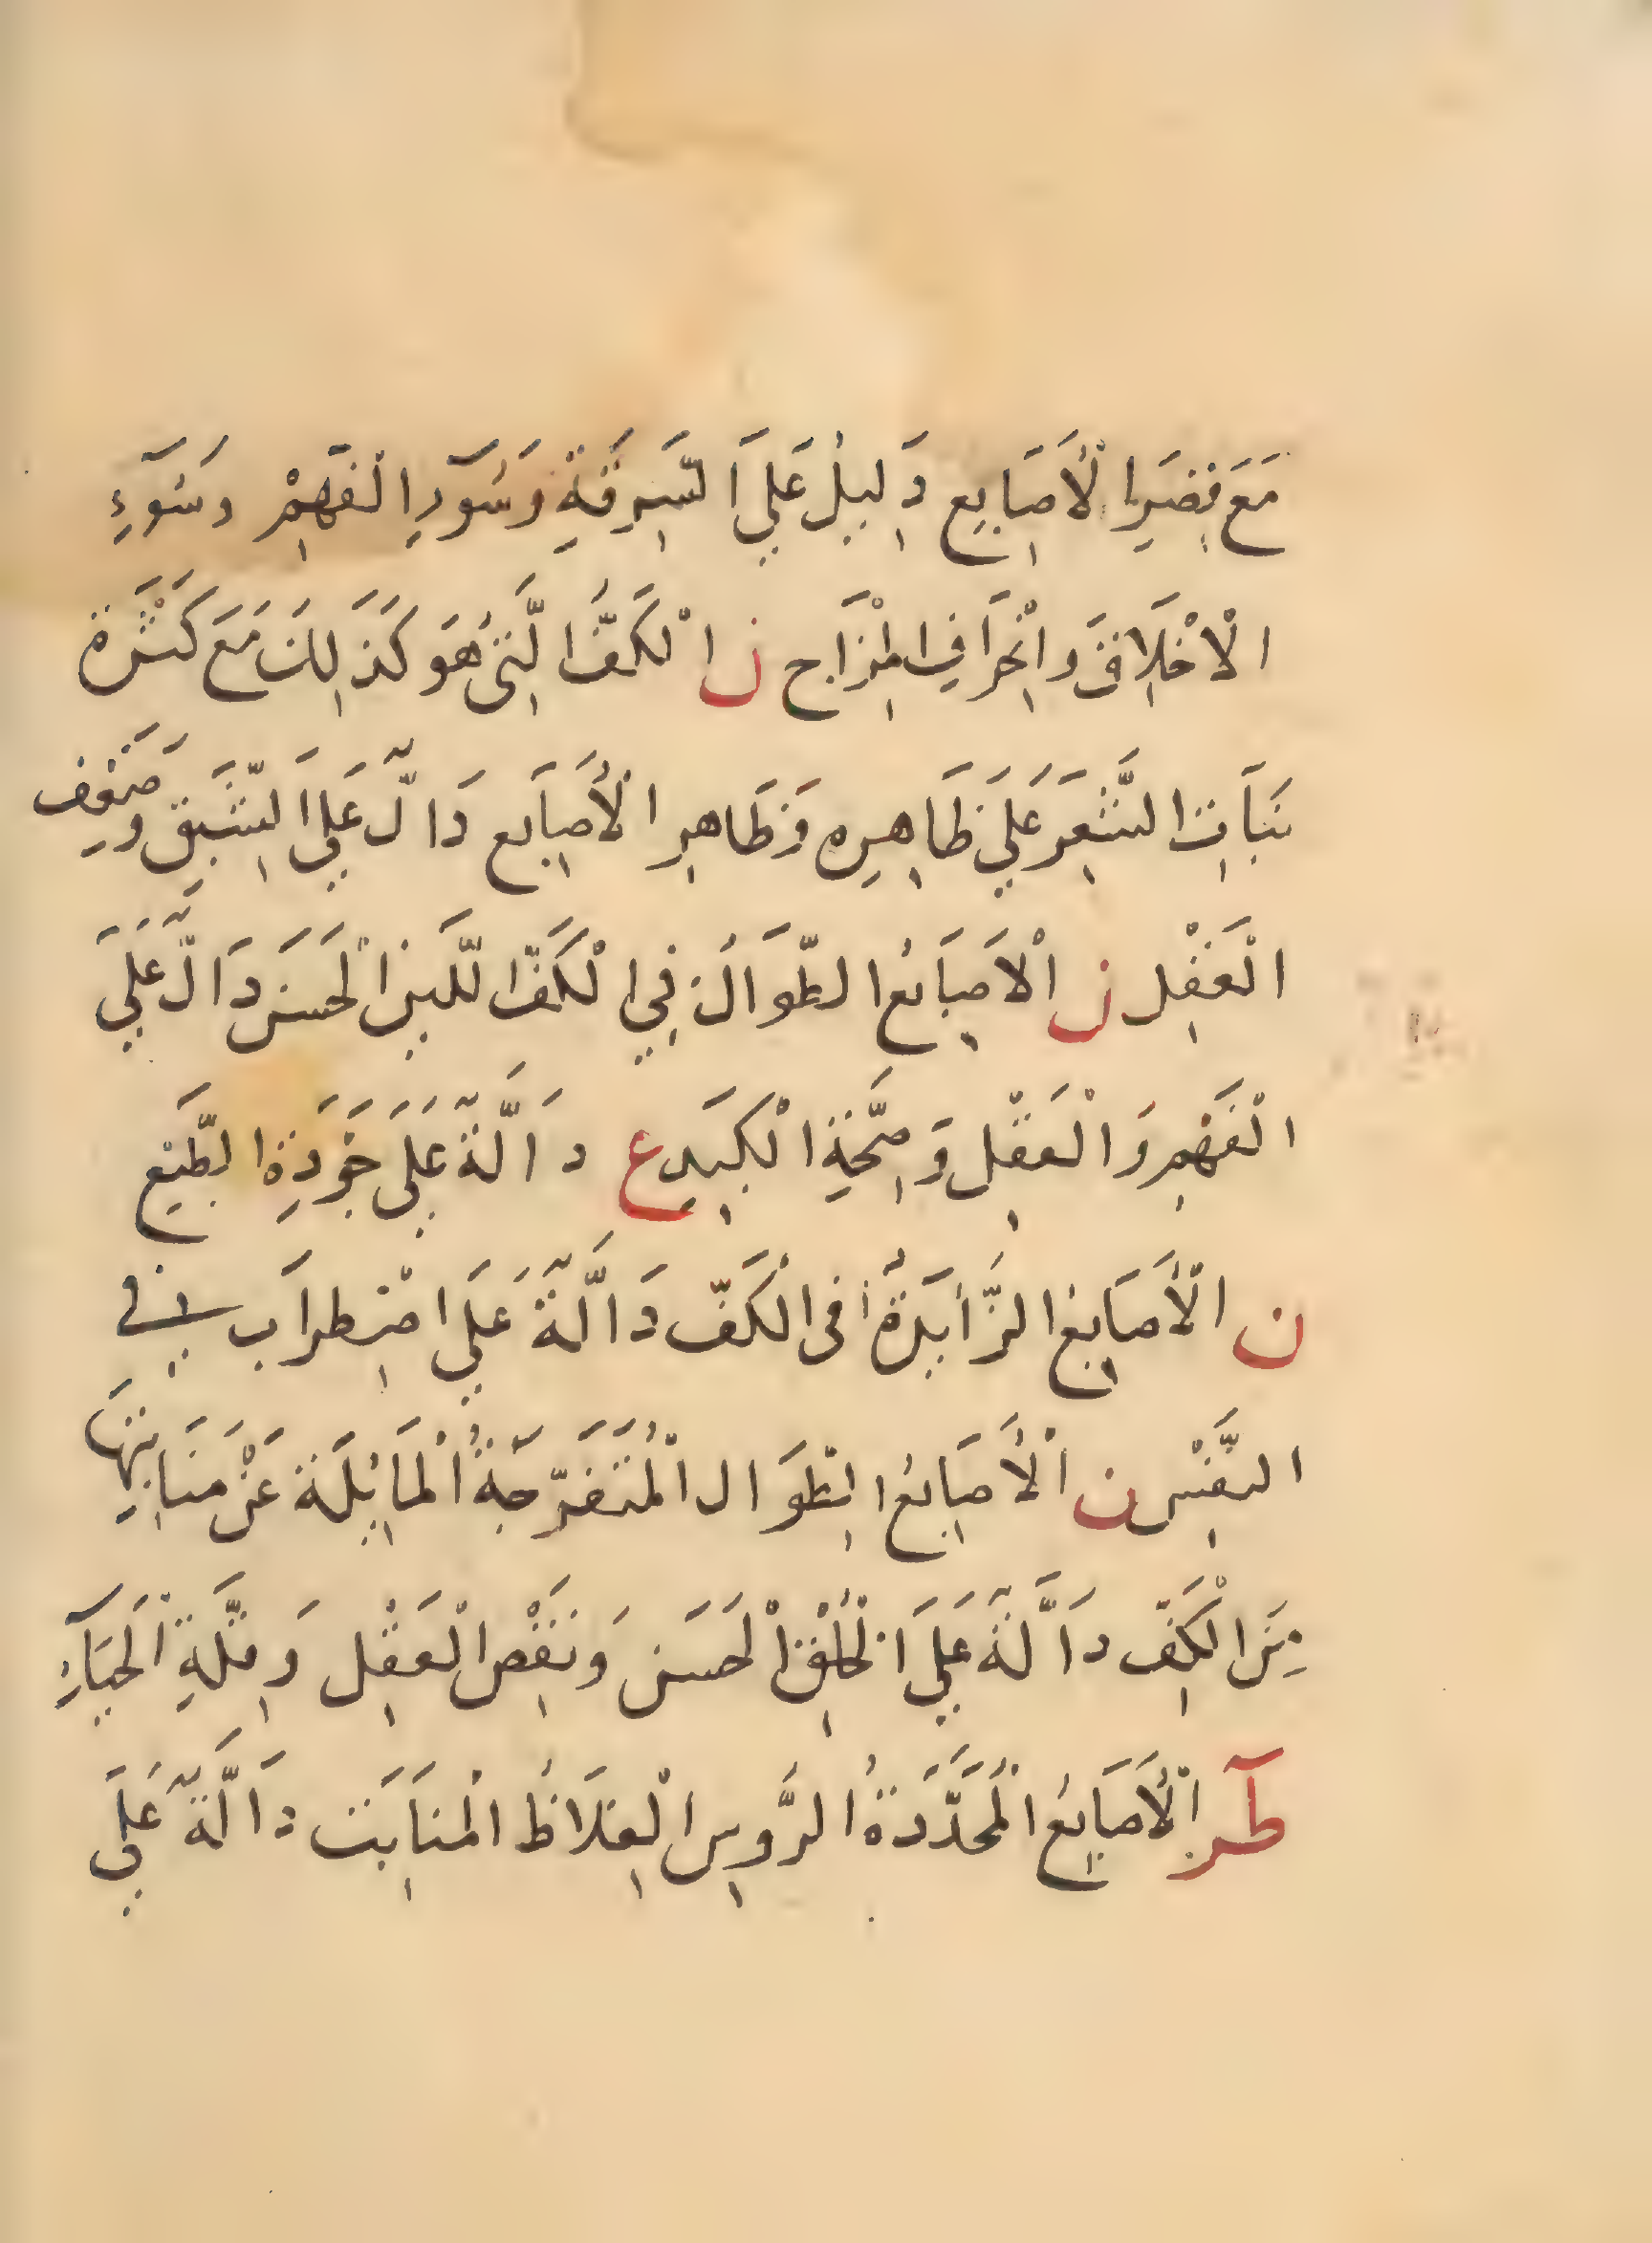 مَعَ قِصَرِ الْأَصَابِعِ دَلِيلُ عَلَيَ السَّرِقَةِ وَسُوَءِ الْفَهِمْ وَسُوَءِ
الْاخْلَاقَ وانْحِرَافِ المِزَاج ن الْكَفُّ الَّتِى هُوَ كَذَ لِكَ مَعَ كَثْرَة
نَبَات الشَّعَرَ عَلَيَ ظَاهِرِه وَظَاهِرِ الْأَصَابع دَالّ عَلَي الشَّبَق وَضَعْف
الْعَقْل ن الْاصَابعُ الطّوَالُ فِي الْكَفّ اللّينِ الْحَسَن دَالّ عَلَيَ
الْفَهْم وَ الْعَقْل وَصِحَّةِ الْكَبِدِ ع دَالَّة عَلَيَ جَوْدَةِ الطَّبْع
ن الْأَصَابِعُ الزَّايدَةُ فى الْكَفّ دَالَّة عَلَي اضْطِرَاب في
النَّفْس ن الْأَصَابعُ الطّوَال الْمُتَفَرّجَةُ الْمَايُلَة عَنْ مَنَابِتِهَا
مِنَ الْكَفّ دَالَّة عَلَيَ الْخُلْقِ الْحَسَن وَنَقْص الْعَقْل وَقِلَّةِ الْحَيَآءِ
طَر الْأَصَابِعُ الْمُحَدَّدَةُ الرُّوس الْغِلَاظُ الْمنَابَت دَالَّة عَلَيَ